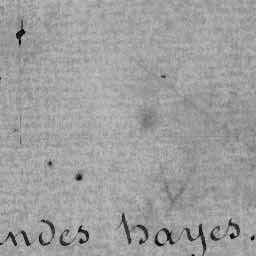 ndes hayes.